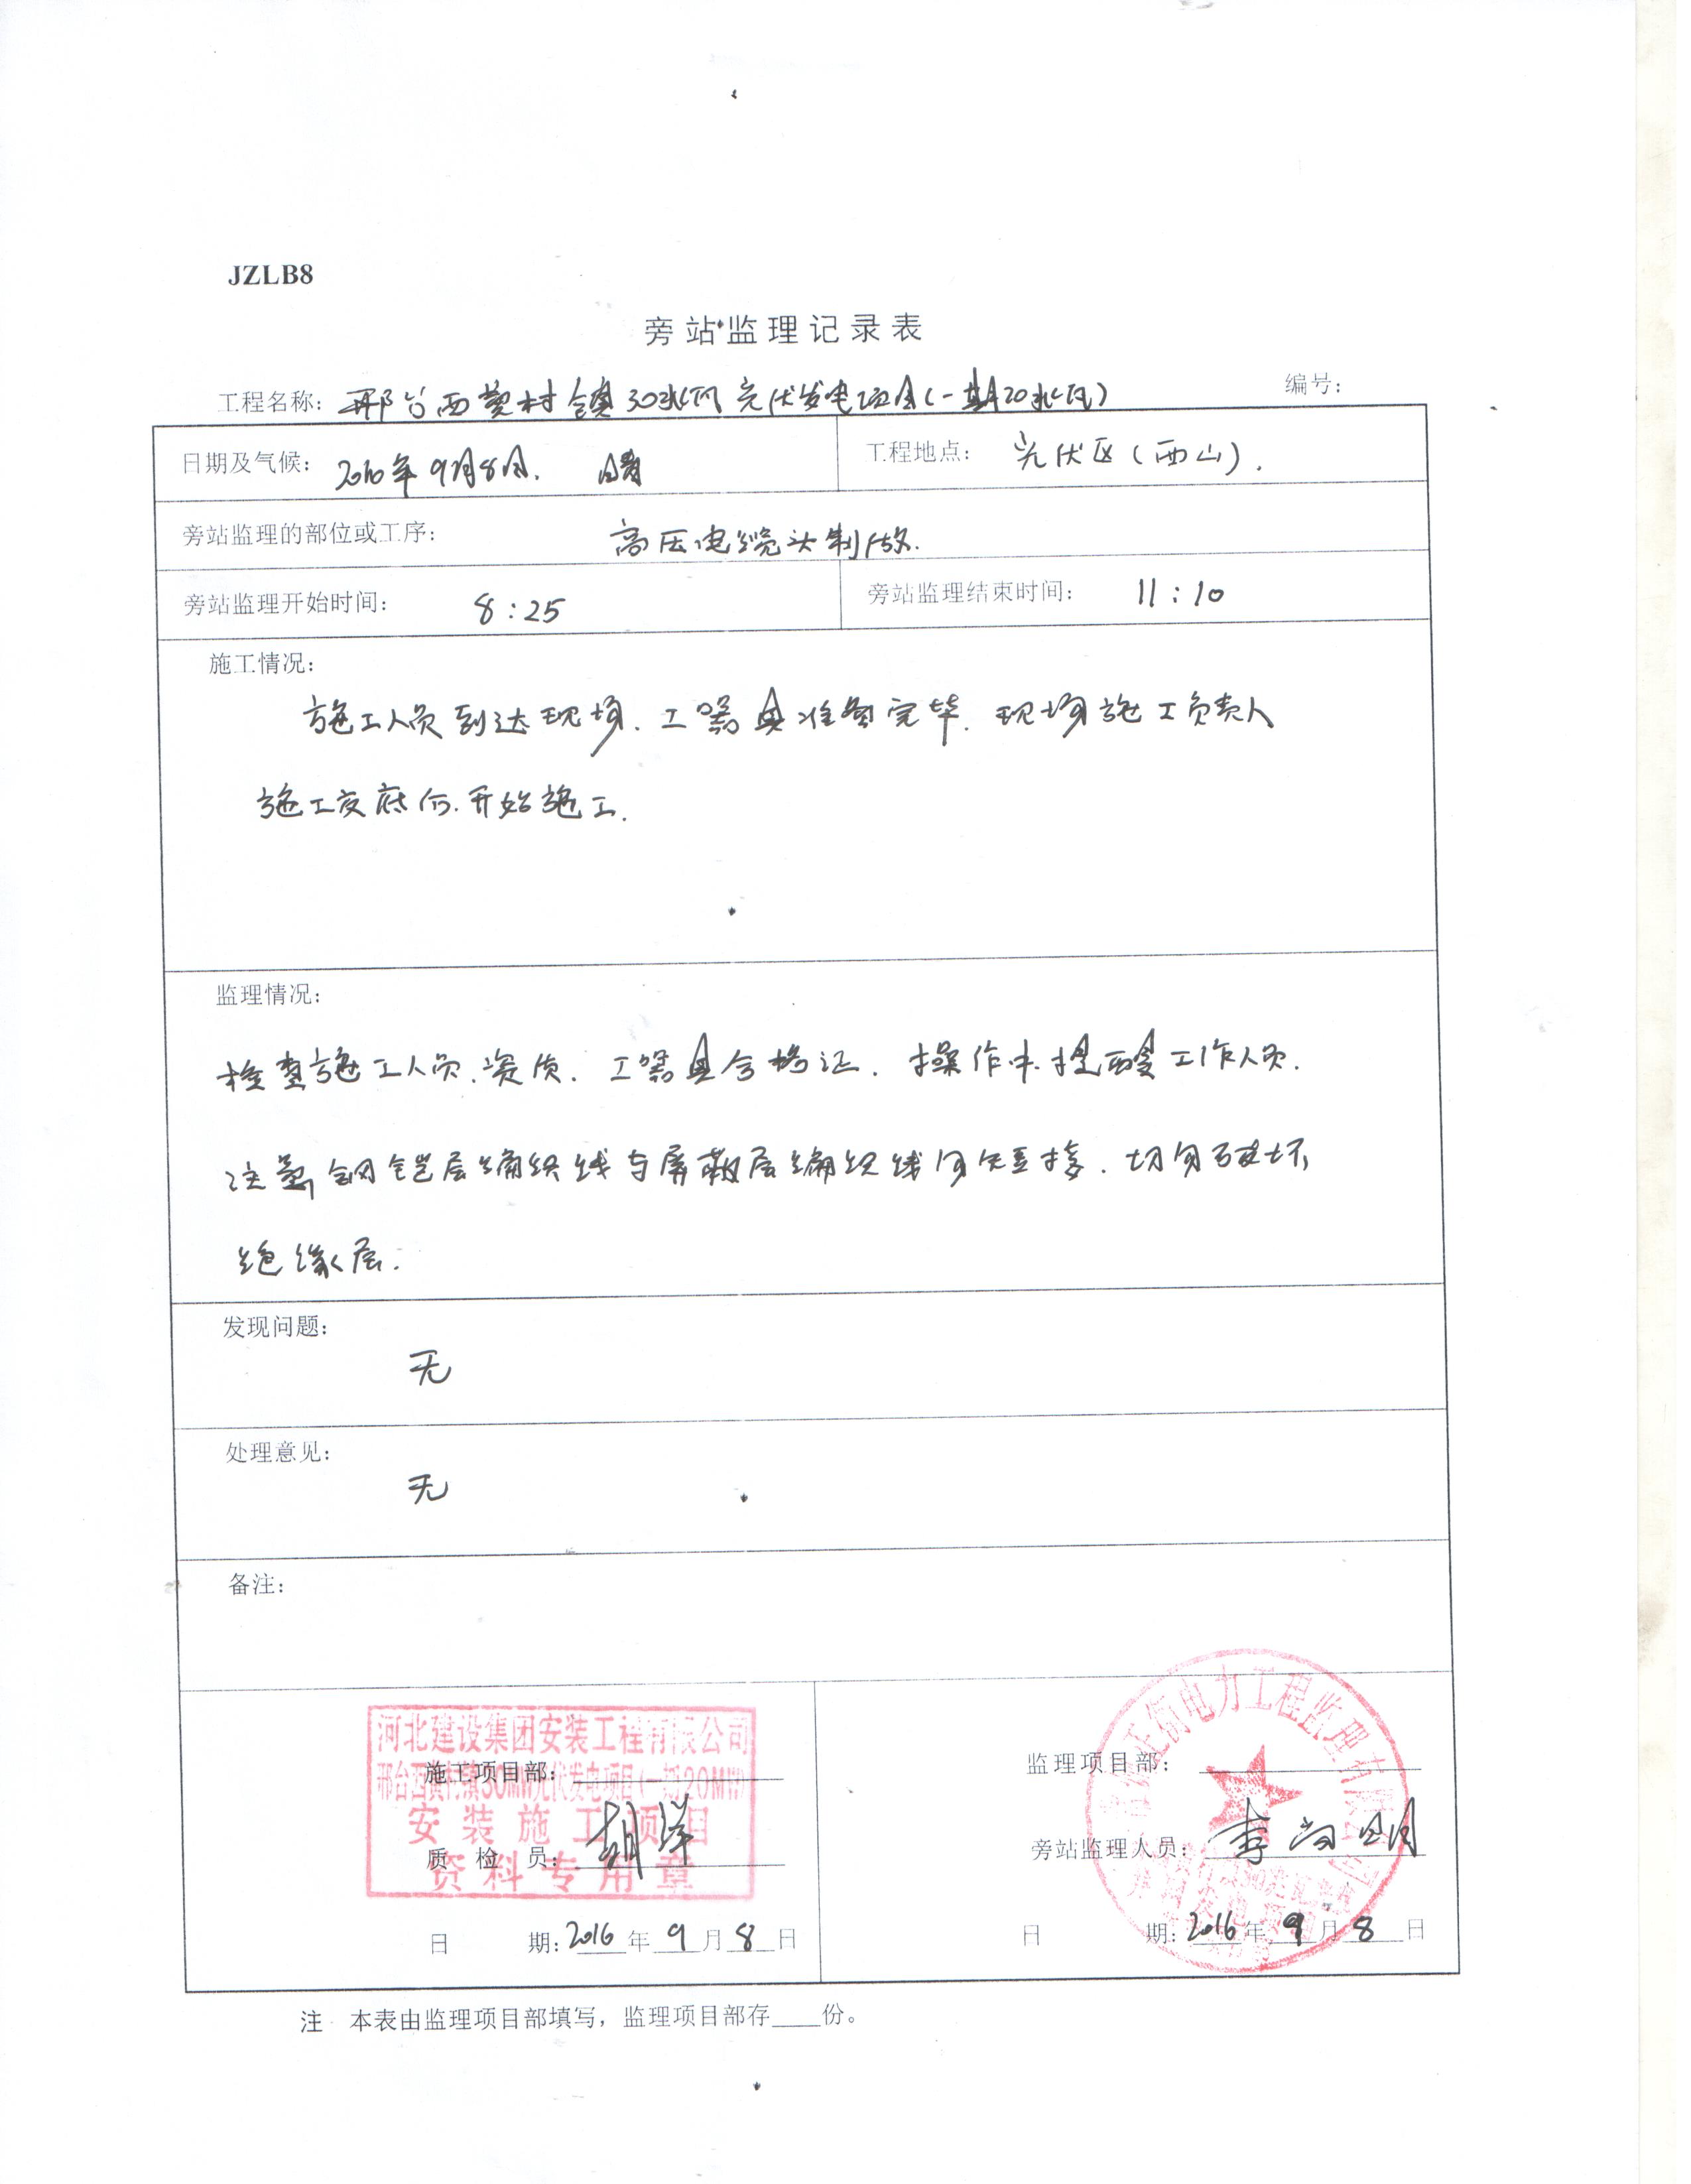 JZLB8
旁站监理记录表
工程名称：邢台西黄村镇30兆瓦光伏发电项目(一期20兆瓦) 编号：
日期及气候：2016年9月8日. 晴 工程地点：光伏区(西山).
旁站监理的部位或工序：高压电缆头制做.
旁站监理开始时间：8:25 旁站监理结束时间：11:10
施工情况：
施工人员到达现场.工器具准备完毕.现场施工负责人
施工交底后.开始施工.
监理情况：
检查施工人员.资质.工器具合格证.操作中.提醒工作人员.
注意钢铠层编织线与屏蔽层编织线勿短接.切勿破坏
绝缘层.
发现问题：
无
处理意见：
无
备注：
河北建设集团安装工程有限公司
邢台西黄村镇30MW光伏发电项目(一期20MW)
安装施工项目
资料专用章
施工项目部：
质检员：胡洋
日期：2016年9月8日
正衡电力工程监理有限公司
监理项目部：
旁站监理人员：李尚明
日期：2016年9月8日
注 本表由监理项目部填写，监理项目部存____份。